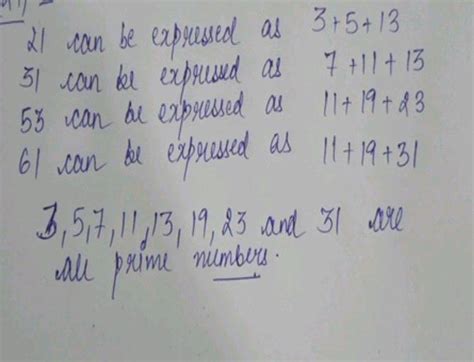 21 can be expressed as 3+5+13
31 can be expressed as 7+11+13
53 can be expressed as 11+19+23
61 can be expressed as 11+19+31
3,5,7,11,13,19,23 and 31 are
all prime numbers.